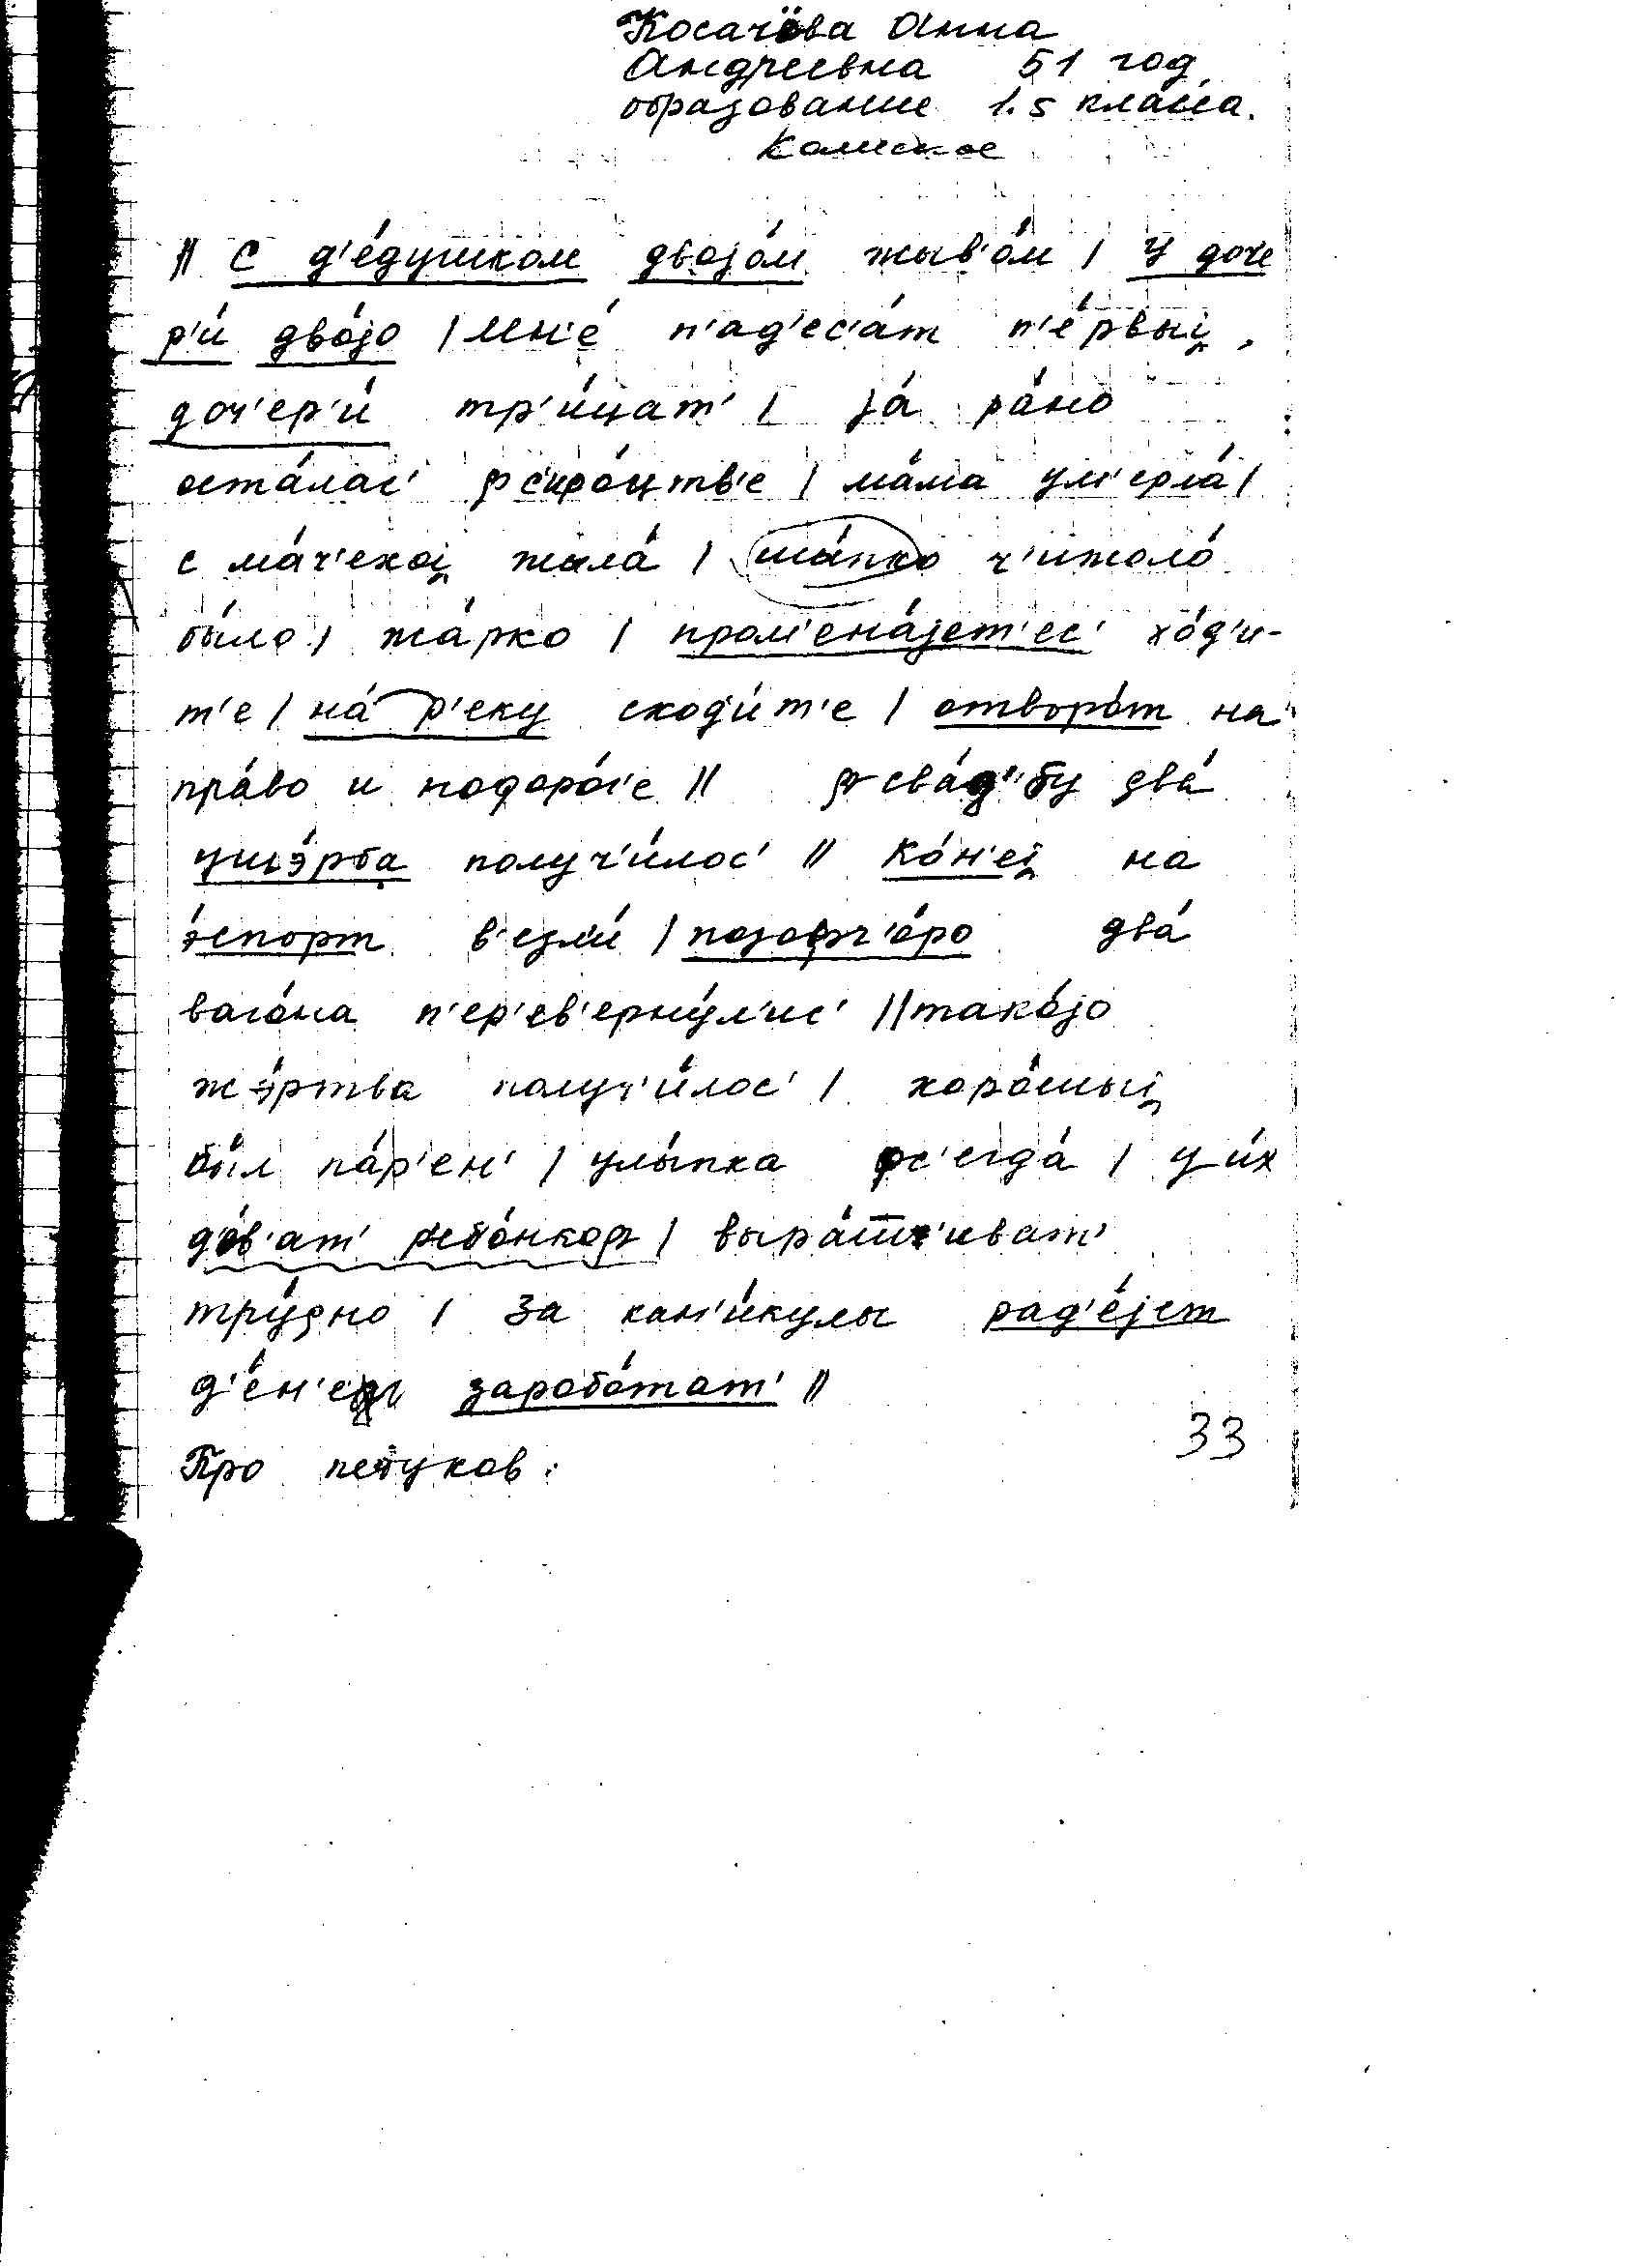 Косачёва Анна
Андреевна 51 год
образование 1.5 класса.
Камское
// С д'е́душком двоjо́м жыв'о́м / У доче
р'и́ дво́jо / Мн'е́ п'ад'ес'а́т п'е́рвыi̯,
доч'ер'и́ тр'и́цат' / jа́ ра́но
оста́лас' ф с'иро́цтв'е / ма́ма ум'ерла́ /
с ма́ч'екоi̯ жыла́ / шы́пко т'ижоло́
бы́ло / жа́рко / пром'ена́jет'ес' хо́д'и-
т'е / на́ р'еку сход'и́т'е / отворо́т на
пра́во и по доро́г'е // ф сва́д'бу два́
ушэ́рба получ'и́лос' // Ко́н'еi̯ на
э́спорт в'езл'и́ / позафч'о́ро два́
ваго́на п'ер'ев'ерну́л'ис' // тако́jо
жэ́ртва получ'и́лос' / хоро́шыi̯
бы́л па́р'ен' / улы́пка фс'егда́ / у и́х
д'о́в'ат' р'ебо́нкоф / выра́шч'иват'
тру́дно / За кан'и́кулы рад'е́jет
д'е́н'ег зарабо́тат' //
Про петухов:
33